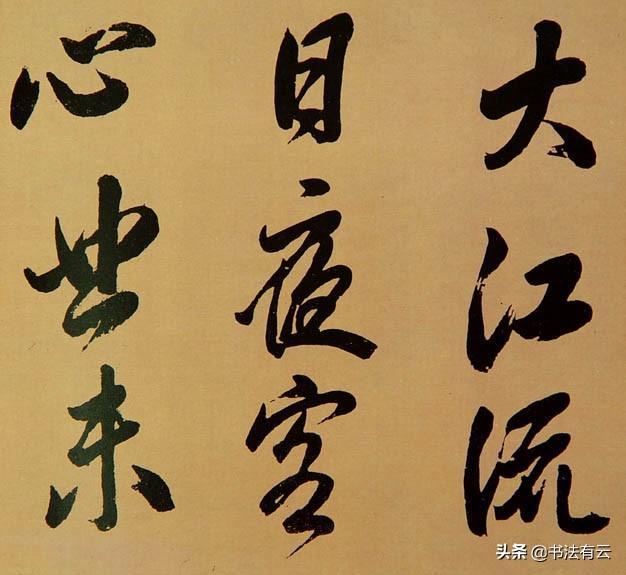 大江流
日夜客
心悲未
头条 @书法有云